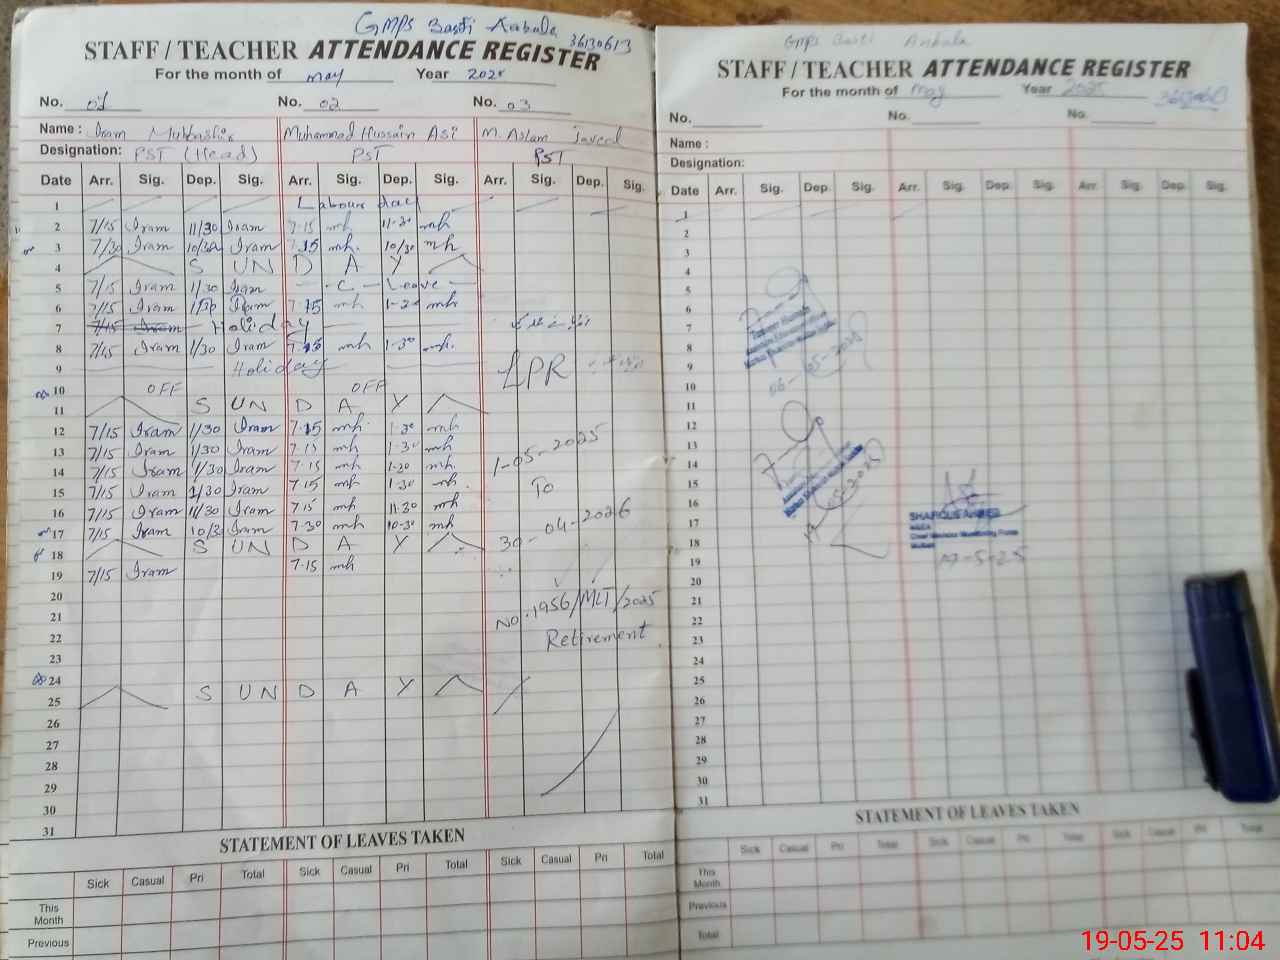 GMPS Basti Ambala
36130613
STAFF / TEACHER ATTENDANCE REGISTER
For the month of may Year 2025
No. 01 No. 02 No. 03
Name : Iram Mubashir Muhammad Hussain Asi M. Aslam Javed
Designation: PST (Head) PST PST
Date Arr. Sig. Dep. Sig. Arr. Sig. Dep. Sig. Arr. Sig. Dep. Sig.
1 Labour day
2 7/15 Iram 11/30 Iram 7-15 mh 11-30 mh
3 7/30 Iram 10/30 Iram 7-15 mh. 10/30 mh
4 S UN D A Y
5 7/15 Iram 1/30 Iram - C - Leave -
6 7/15 Iram 1/30 Iram 7-15 mh 1-30 mh
7 7/15 Iram Holiday
8 7/15 Iram 1/30 Iram 7-15 mh 1-30 mh.
9 Holiday LPR
10 OFF OFF
11 S UN D A Y
12 7/15 Iram 1/30 Iram 7-15 mh. 1-30 mh
13 7/15 Iram 1/30 Iram 7-15 mh 1-30 mh 1-05-2025
14 7/15 Iram 1/30 Iram 7-15 mh 1-30 mh
15 7/15 Iram 1/30 Iram 7-15 mh 1-30 mh. To
16 7/15 Iram 11/30 Iram 7-15 mh 11-30 mh
17 7/15 Iram 10/3 Iram 7-30 mh 10-30 mh 30-04-2026
18 S UN D A Y
19 7/15 Iram 7-15 mh
20
21 NO.1956/MLT/2025
22 Retirement
23
24
25 S UN D A Y
26
27
28
29
30
31
STATEMENT OF LEAVES TAKEN
Sick Casual Pri Total Sick Casual Pri Total Sick Casual Pri Total
This Month
Previous
GMPS Basti Ambala
STAFF / TEACHER ATTENDANCE REGISTER
For the month of May Year 2025
36130613
No. No. No.
Name :
Designation:
Date Arr. Sig. Dep. Sig. Arr. Sig. Dep. Sig. Arr. Sig. Dep. Sig.
1
2
3
4
5
6
7
8
9
10
11
12
13
14
15
16
17
18
19
20
21
22
23
24
25
26
27
28
29
30
31
06-05-2025
SHARQUE AHMED
Chief Minister Monitoring Force
Multan
17-5-25
STATEMENT OF LEAVES TAKEN
Sick Casual Pri Total Sick Casual Pri Total Sick Casual Pri Total
This Month
Previous
Total
19-05-25 11:04